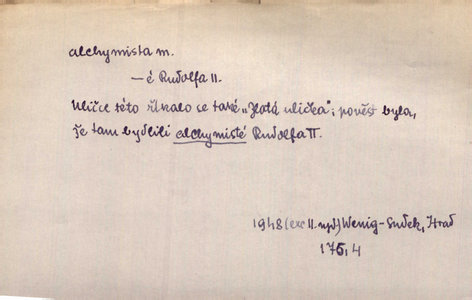 alchymista m.
—é Rudolfa II.
Uličce této říkalo se také „Zlatá ulička“; pověst byla,
že tam bydlili alchymisté Rudolfa II.
1948 (exc II. vyd) Wenig-Sudek, Hrad
175, 4